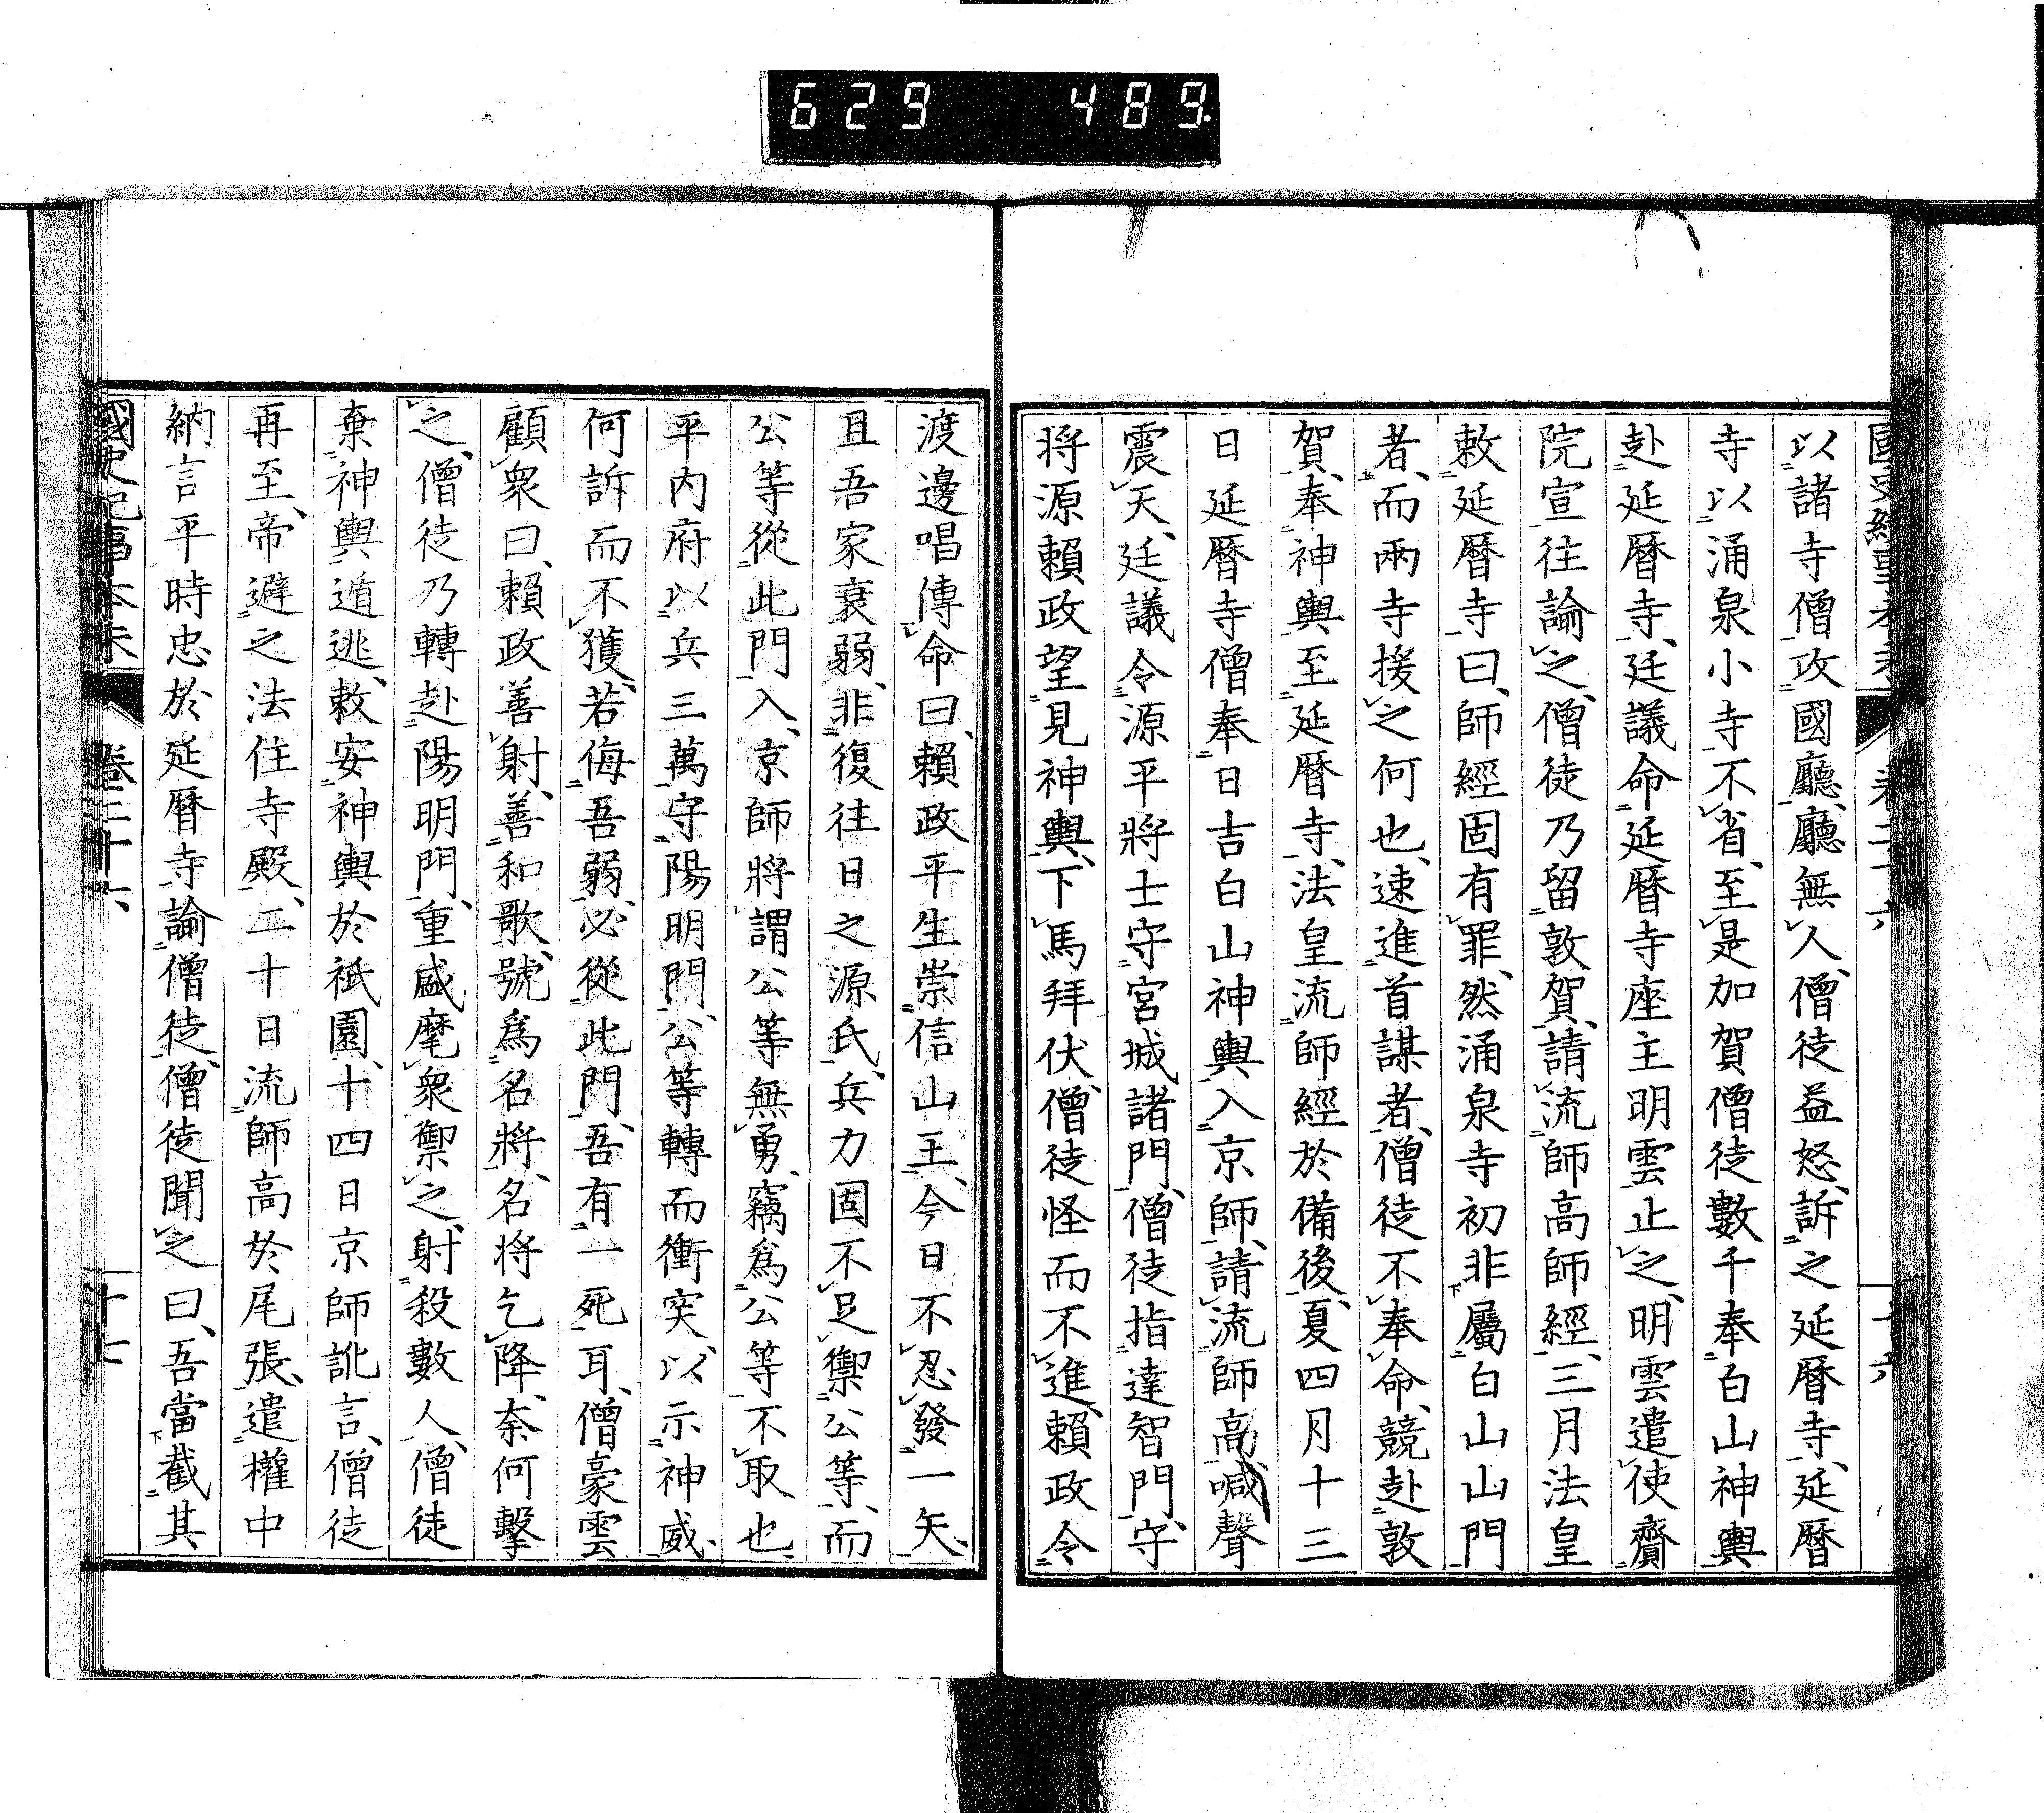 629 489.
以諸寺僧攻國廳、廳無人、僧徒益怒、訴之延曆寺、延曆
寺以涌泉小寺不省、至是加賀僧徒數千奉白山神輿
赴延曆寺、廷議命延曆寺座主明雲止之、明雲遣使齎
院宣往諭之、僧徒乃留敦賀、請流師高師經、三月法皇
敕延曆寺曰、師經固有罪、然涌泉寺初非屬白山山門
者、而兩寺援之何也、速進首謀者、僧徒不奉命、競赴敦
賀、奉神輿至延曆寺、法皇流師經於備後、夏四月十三
日延曆寺僧奉日吉白山神輿入京師、請流師高、喊聲
震天、廷議令源平將士守宮城諸門、僧徒指達智門、守
將源賴政望見神輿、下馬拜伏、僧徒怪而不進、賴政令
渡邊唱傳命曰、賴政平生崇信山王、今日不忍發一矢、
且吾家衰弱、非復往日之源氏、兵力固不足禦公等、而
公等從此門入、京師將謂公等無勇、竊爲公等不取也、
平內府以兵三萬守陽明門、公等轉而衝突、以示神威、
何訴而不獲、若侮吾弱、必從此門、吾有一死耳、僧豪雲
顧衆曰、賴政善射、善和歌、號爲名將、名將乞降、柰何擊
之、僧徒乃轉赴陽明門、重盛麾衆禦之、射殺數人、僧徒
棄神輿遁逃、敕安神輿於祇園、十四日京師訛言、僧徒
再至、帝避之法住寺殿、二十日流師高於尾張、遣權中
納言平時忠於延曆寺諭僧徒、僧徒聞之曰、吾當截其
國史紀事本末 卷二十六、 十七